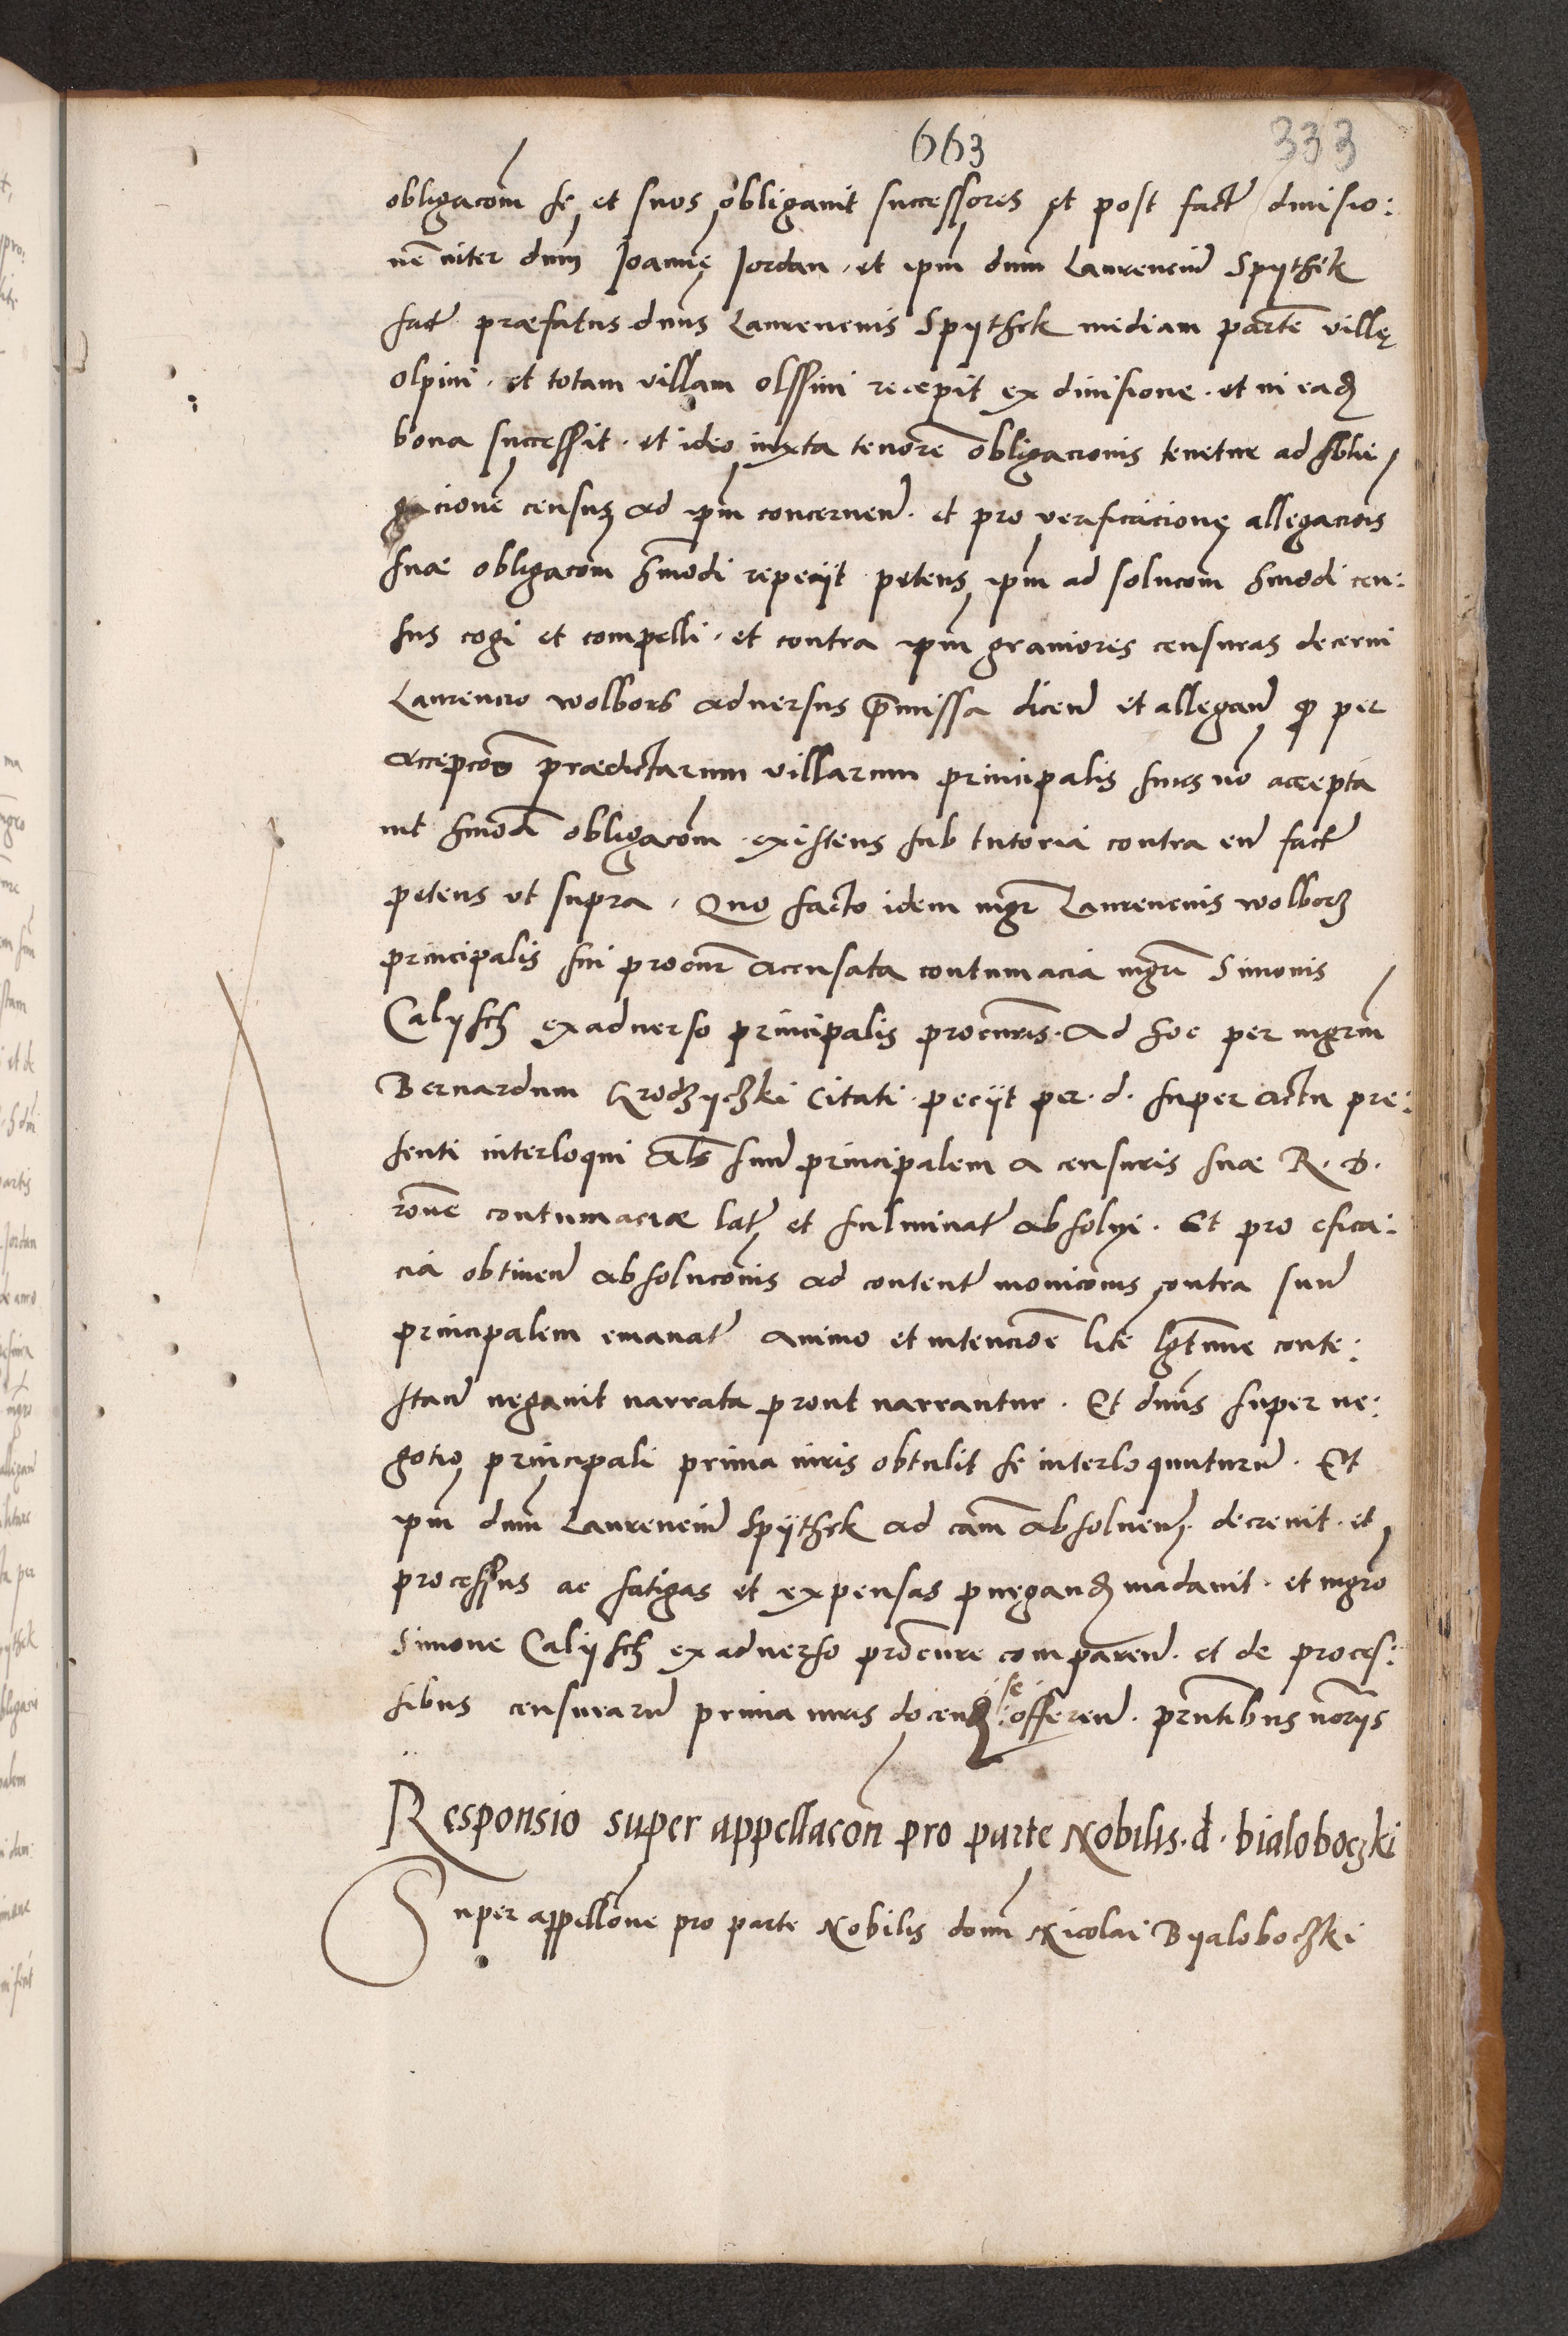 663
333
obligacom se, et suos obligavit successores et post fact divisio:
nē inter dnm Joannē Jordan, et ipm dnm Laurenciū Spythek
fact præfatus dnus Laurencius Spythek mediam partē villę
olpini, et totam villam olssini recepit ex divisione. et in eadē
bona successit. et ideo iuxta tenorē obligacionis tenetur ad
cionē census ad ipm concernen. et pro verificacionę allegacois
suæ obligacom hmodi repeciit petens, ipm ad solucom hmodi cen:
sus cogi et compelli, et contra ipm graviores censuras decerni
Laurencio wolborz adversus p̄missa dicen et allegan q per
accepcoē prædictarum villarum principalis suus nō accepta
vit hmodi obligacom existens sub tutoria contra eū fact
petens ut supra. Quo facto idem mgr Laurencius wolborz
principalis sui procur accusata contumacia mgri Simonis
Calysch ex adverso principalis procuris. Ad hoc per mgrm
Bernardum Krodzyczki citati. peciit per. d. super actu pre:
senti interloqui Als suū principalem a censuris suæ R. d.
rone contumaciæ lat et fulminat absolvi. Et pro efica:
cia obtinen absolucōnis ad content monicōnis contra suū
principalem emanat animo et intencioē litē lgtime conte:
stan negavit narrata prout narrantur. Et dnus super ne:
gotio principali prima iuris obtulit se interloquuturū. Et
ipm dnm Laurenciū Spythek ad cām absolven. decrevit. et
processus ac fatigas et expensas pnegand mādavit. et mgro
Simone Calysch ex adverso procure comparen. et de proces:
sibus censurarū prima iuris docend se offeren. prntibus noriis
Responsio super appellacōn pro parte Nobilis. d. bialoboczki
Super appellōne pro parte Nobilis domi Nicolai Byaloboczki